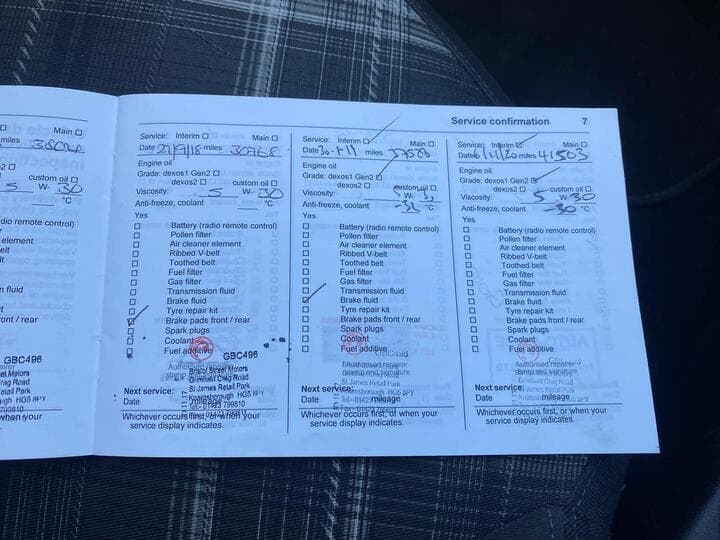 Service confirmation 7
Main ☐
miles
custom oil ☐
W- 30
°C
dio remote control)
element
elt
n fluid
ont / rear
GBC496
Road
tail Park
HG5
when your
Service: Interim ☐ Main ☐
Date 27/9/18 miles 30768
Engine oil
Grade: dexos1 Gen2 ☐
dexos2 ☐ custom oil ☐
Viscosity: 5 W- 30
Anti-freeze, coolant °C
Yes
☐ Battery (radio remote control)
☐ Pollen filter
☐ Air cleaner element
☐ Ribbed V-belt
☐ Toothed belt
☐ Fuel filter
☐ Gas filter
☐ Transmission fluid
☐ Brake fluid
☐ Tyre repair kit
☐ Brake pads front / rear
☐ Spark plugs
☐ Coolant
☐ Fuel additive
GBC496
Bristol Street Motors
Grimbald Crag Road
St James Retail Park
Knaresborough HG5
Tel - 01423 799810
Next service:
Date mileage
Whichever occurs first, or when your
service display indicates.
Service: Interim ☐ Main ☐
Date miles
Engine oil
Grade: dexos1 Gen2 ☐
dexos2 ☐ custom oil ☐
Viscosity: W-
Anti-freeze, coolant -32 °C
Yes
☐ Battery (radio remote control)
☐ Pollen filter
☐ Air cleaner element
☐ Ribbed V-belt
☐ Toothed belt
☐ Fuel filter
☐ Gas filter
☐ Transmission fluid
☐ Brake fluid
☐ Tyre repair kit
☐ Brake pads front / rear
☐ Spark plugs
☐ Coolant
☐ Fuel additive
Authorised repairer
stamp and signature
St James Retail Park
Next service:
Date mileage
Whichever occurs first, or when your
service display indicates.
Service: Interim ☐ Main ☐
Date miles 41503
Engine oil
Grade: dexos1 Gen2 ☐
dexos2 ☐ custom oil ☐
Viscosity: 5 W- 30
Anti-freeze, coolant -30 °C
Yes
☐ Battery (radio remote control)
☐ Pollen filter
☐ Air cleaner element
☐ Ribbed V-belt
☐ Toothed belt
☐ Fuel filter
☐ Gas filter
☐ Transmission fluid
☐ Brake fluid
☐ Tyre repair kit
☐ Brake pads front / rear
☐ Spark plugs
☐ Coolant
☐ Fuel additive
Authorised repairer
stamp and signature
Next service:
Date mileage
Whichever occurs first, or when your
service display indicates.